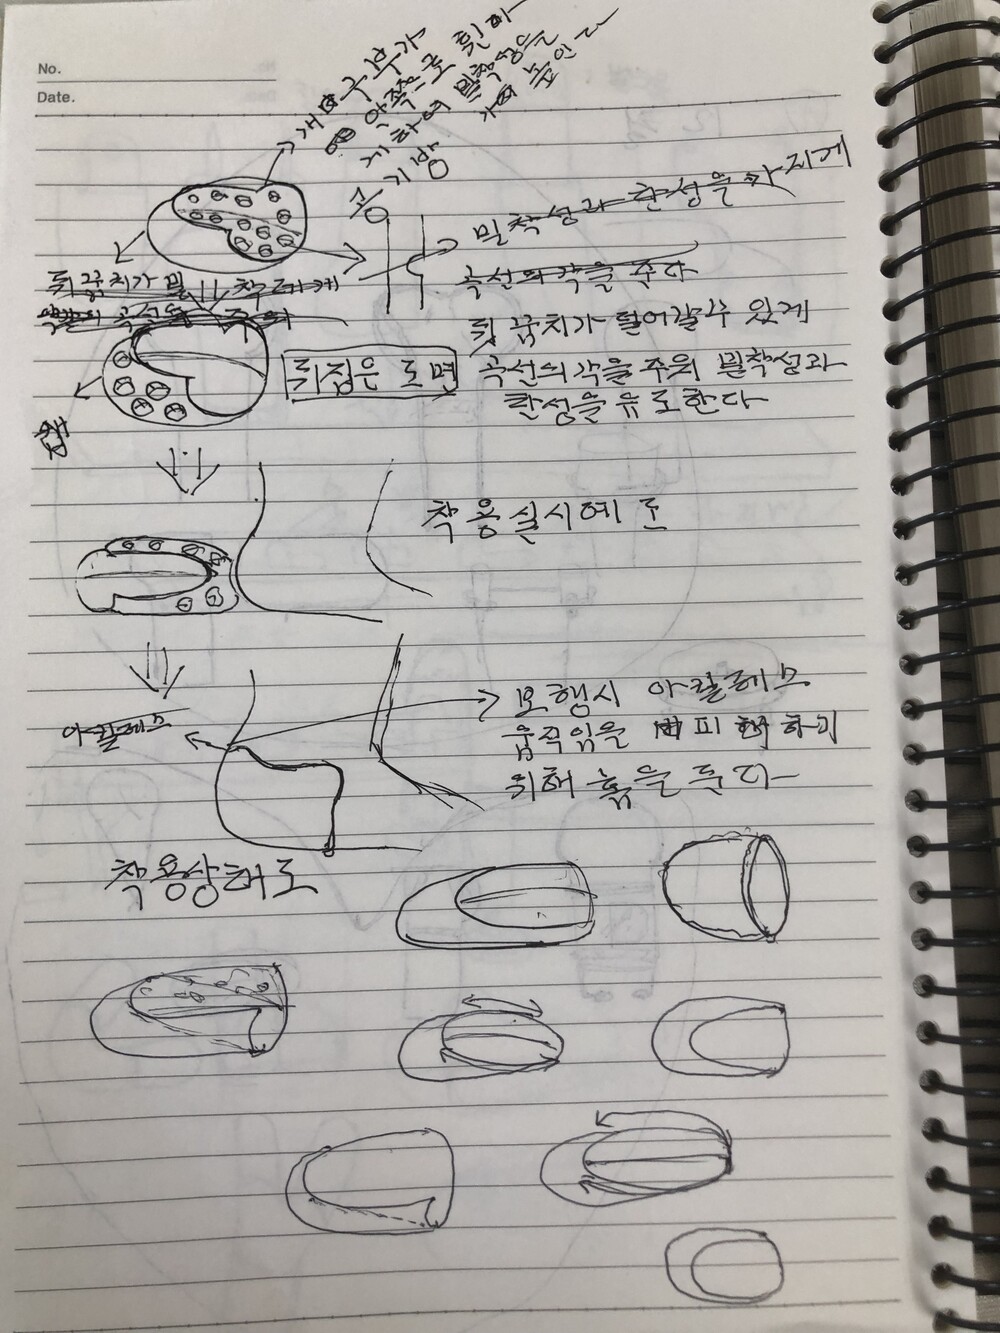 No.
Date.
개방구 부가
안쪽으로 휜 H
하여 밀착성을
더 높인다
공기방
밀착성과 탄성을 가지게
곡선의 각을 준다
뒤꿈치가 밀 착 되게
곡선의 주의
뒷꿈치가 덜어갈수 있게
뒤집은 도면
곡선의각을 주워 밀착성과
탄성을 유도한다
착용실시예도
보행시 아킬레스
아킬레스
움직임을 피 하기
위해 홈을 준다
착용상태도